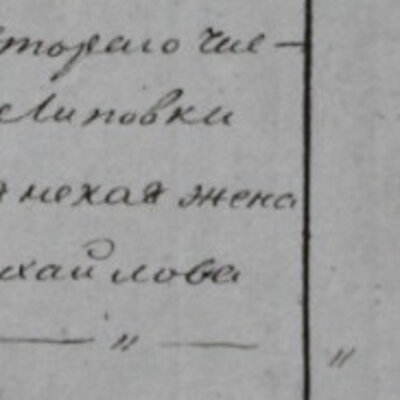 второго чис–
Липовки
жена
хайлова
— „ — „